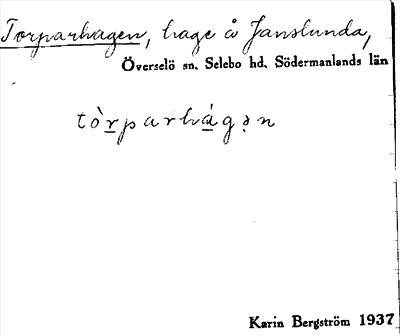 Torparhagen, hage å Janslunda,
Överselö sn. Selebo hd. Södermanlands län
tòrparhágən
Karin Bergström 1937